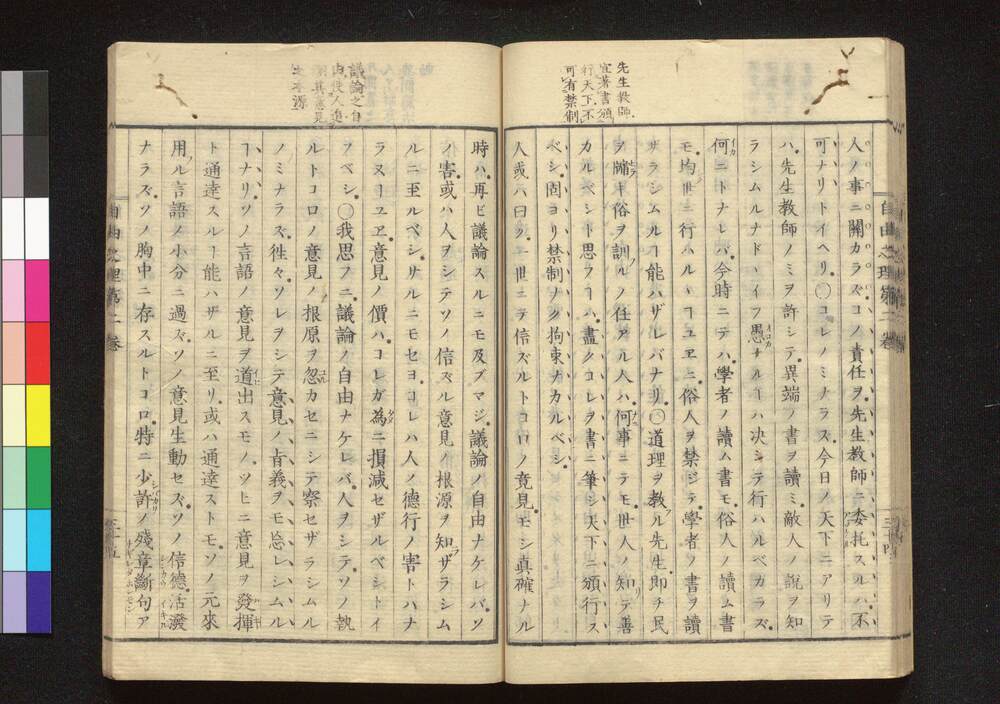 先生教師
宜著書頒
行天下不
可有禁制
人ノ事ニ關カラズコノ責任ヲ先生教師ニ委托スルハ不
可ナリトイヘリ〇コレノミナラス今日ノ天下ニアリテ
ハ先生教師ノミヲ許シテ異端ノ書ヲ讀ミ敵人ノ說ヲ知
ラシムルナドヽイフ愚ナルヿハ决シテ行ハルベカラズ
何ニトナレバ今時ニテハ學者ノ讀ム書モ俗人ノ讀ム書
モ均ク世ニ行ハルヽヿユヱニ俗人ヲ禁ジテ學者ノ書ヲ讀
ザラシムルヿ能ハザレバナリ〇道理ヲ教ル先生即チ民
ヲ牖キ俗ヲ訓ルノ任アル人ハ何事ニテモ世人ノ知テ善
カルベシト思フヿハ盡クコレヲ書ニ筆シ天下ニ頒行ス
ベシ固ヨリ禁制ナク拘束ナカルベシ
人或ハ曰ク一世ニテ信ズルトコロノ意見モシ真確ナル
自由之理第二卷
議論之自
由使人追
尋其意見
之本源
時ハ再ビ議論スルニモ及ブマジ議論ノ自由ナケレバソ
ノ害或ハ人ヲシテソノ信ズル意見ノ根源ヲ知ザラシム
ルニ至ルベシサルニモセヨコレハ人ノ德行ノ害トハナ
ラヌヿユヱ意見ノ價ハコレガ為ニ損减セザルベシトイ
フベシ〇我思フニ議論ノ自由ナケレバ人ヲシテソノ執
ルトコロノ意見ノ根原ヲ忽カセニシテ察セザラシムル
ノミナラズ徃々ソレヲシテ意見ノ旨義ヲモ忘レシムル
ヿナリソノ言語ノ意見ヲ道出スモノツヒニ意見ヲ發揮
ト通達スルヿ能ハザルニ至リ或ハ通達ストモソノ元來
用フル言語ノ小分ニ過ズソノ意見生動セズソノ信德活潑
ナラズソノ胸中ニ存スルトコロ特ニ少許ノ殘章斷句ア
自由之理第二卷